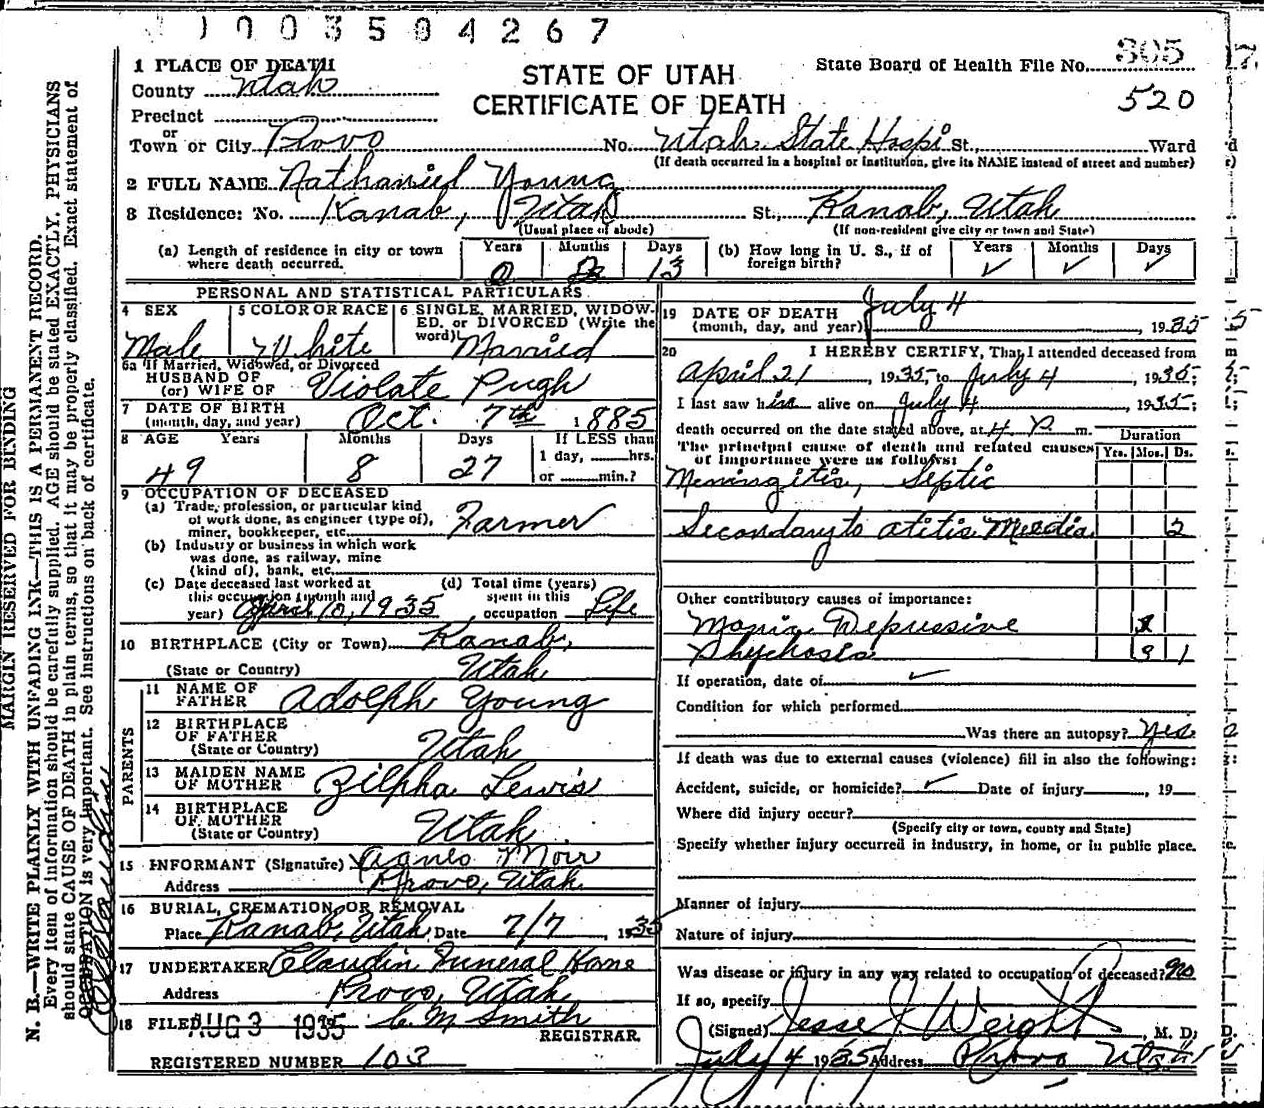 1003504267
1 PLACE OF DEATH
County Utah
Precinct
or
Town or City Provo
STATE OF UTAH
CERTIFICATE OF DEATH
State Board of Health File No. 305
520
No. Utah State Hospi St., Ward
(If death occurred in a hospital or institution, give its NAME instead of street and number)
2 FULL NAME Nathaniel Young
3 Residence: No. Kanab, Utah St., Kanab, Utah
(Usual place of abode) (If non-resident give city or town and State)
(a) Length of residence in city or town where death occurred.
Years Months Days
0 13
(b) How long in U. S., if of foreign birth?
Years Months Days
✓ ✓ ✓
PERSONAL AND STATISTICAL PARTICULARS
4 SEX
Male
5 COLOR OR RACE
White
6 SINGLE, MARRIED, WIDOW-
ED, or DIVORCED (Write the
word)
Married
6a If Married, Widowed, or Divorced
HUSBAND OF
(or) WIFE OF Violate Pugh
7 DATE OF BIRTH
(month, day, and year) Oct. 7th 1885
8 AGE Years Months Days If LESS than
1 day, hrs.
or min.?
49 8 27
9 OCCUPATION OF DECEASED
(a) Trade, profession, or particular kind
of work done, as engineer (type of),
miner, bookkeeper, etc. Farmer
(b) Industry or business in which work
was done, as railway, mine
(kind of), bank, etc.
(c) Date deceased last worked at
this occupation (month and
year) April 10, 1935
(d) Total time (years)
spent in this
occupation Life
10 BIRTHPLACE (City or Town) Kanab,
(State or Country) Utah
PARENTS
11 NAME OF
FATHER Adolph Young
12 BIRTHPLACE
OF FATHER
(State or Country) Utah
13 MAIDEN NAME
OF MOTHER Zilpha Lewis
14 BIRTHPLACE
OF MOTHER
(State or Country) Utah
15 INFORMANT (Signature) Agnes Moir
Address Provo, Utah
16 BURIAL, CREMATION, OR REMOVAL
Place Kanab, Utah Date 7/7, 1935
17 UNDERTAKER Claudin Funeral Home
Address Provo, Utah
18 FILED AUG 3 1935 C. M. Smith
REGISTRAR.
REGISTERED NUMBER 103
19 DATE OF DEATH
(month, day, and year) July 4, 1935
20 I HEREBY CERTIFY, That I attended deceased from
April 21, 1935, to July 4, 1935;
I last saw him alive on July 4, 1935;
death occurred on the date stated above, at 4 P m.
The principal cause of death and related causes
of importance were as follows:
Duration
Yrs. Mos. Ds.
Meningitis, Septic
Secondary to otitis Meedia 2
Other contributory causes of importance:
Manic Depressive
Phychosis 3 1
If operation, date of ✓
Condition for which performed
Was there an autopsy? Yes
If death was due to external causes (violence) fill in also the following:
Accident, suicide, or homicide? ✓ Date of injury , 19
Where did injury occur?
(Specify city or town, county and State)
Specify whether injury occurred in industry, in home, or in public place.
Manner of injury
Nature of injury
Was disease or injury in any way related to occupation of deceased? No
If so, specify
(Signed) Jesse J Weight, M. D.
July 4 1935 Address Provo Utah
MARGIN RESERVED FOR BINDING
N. B.—WRITE PLAINLY WITH UNFADING INK—THIS IS A PERMANENT RECORD.
Every item of information should be carefully supplied. AGE should be stated EXACTLY. PHYSICIANS
should state CAUSE OF DEATH in plain terms, so that it may be properly classified. Exact statement of
OCCUPATION is very important. See instructions on back of certificate.